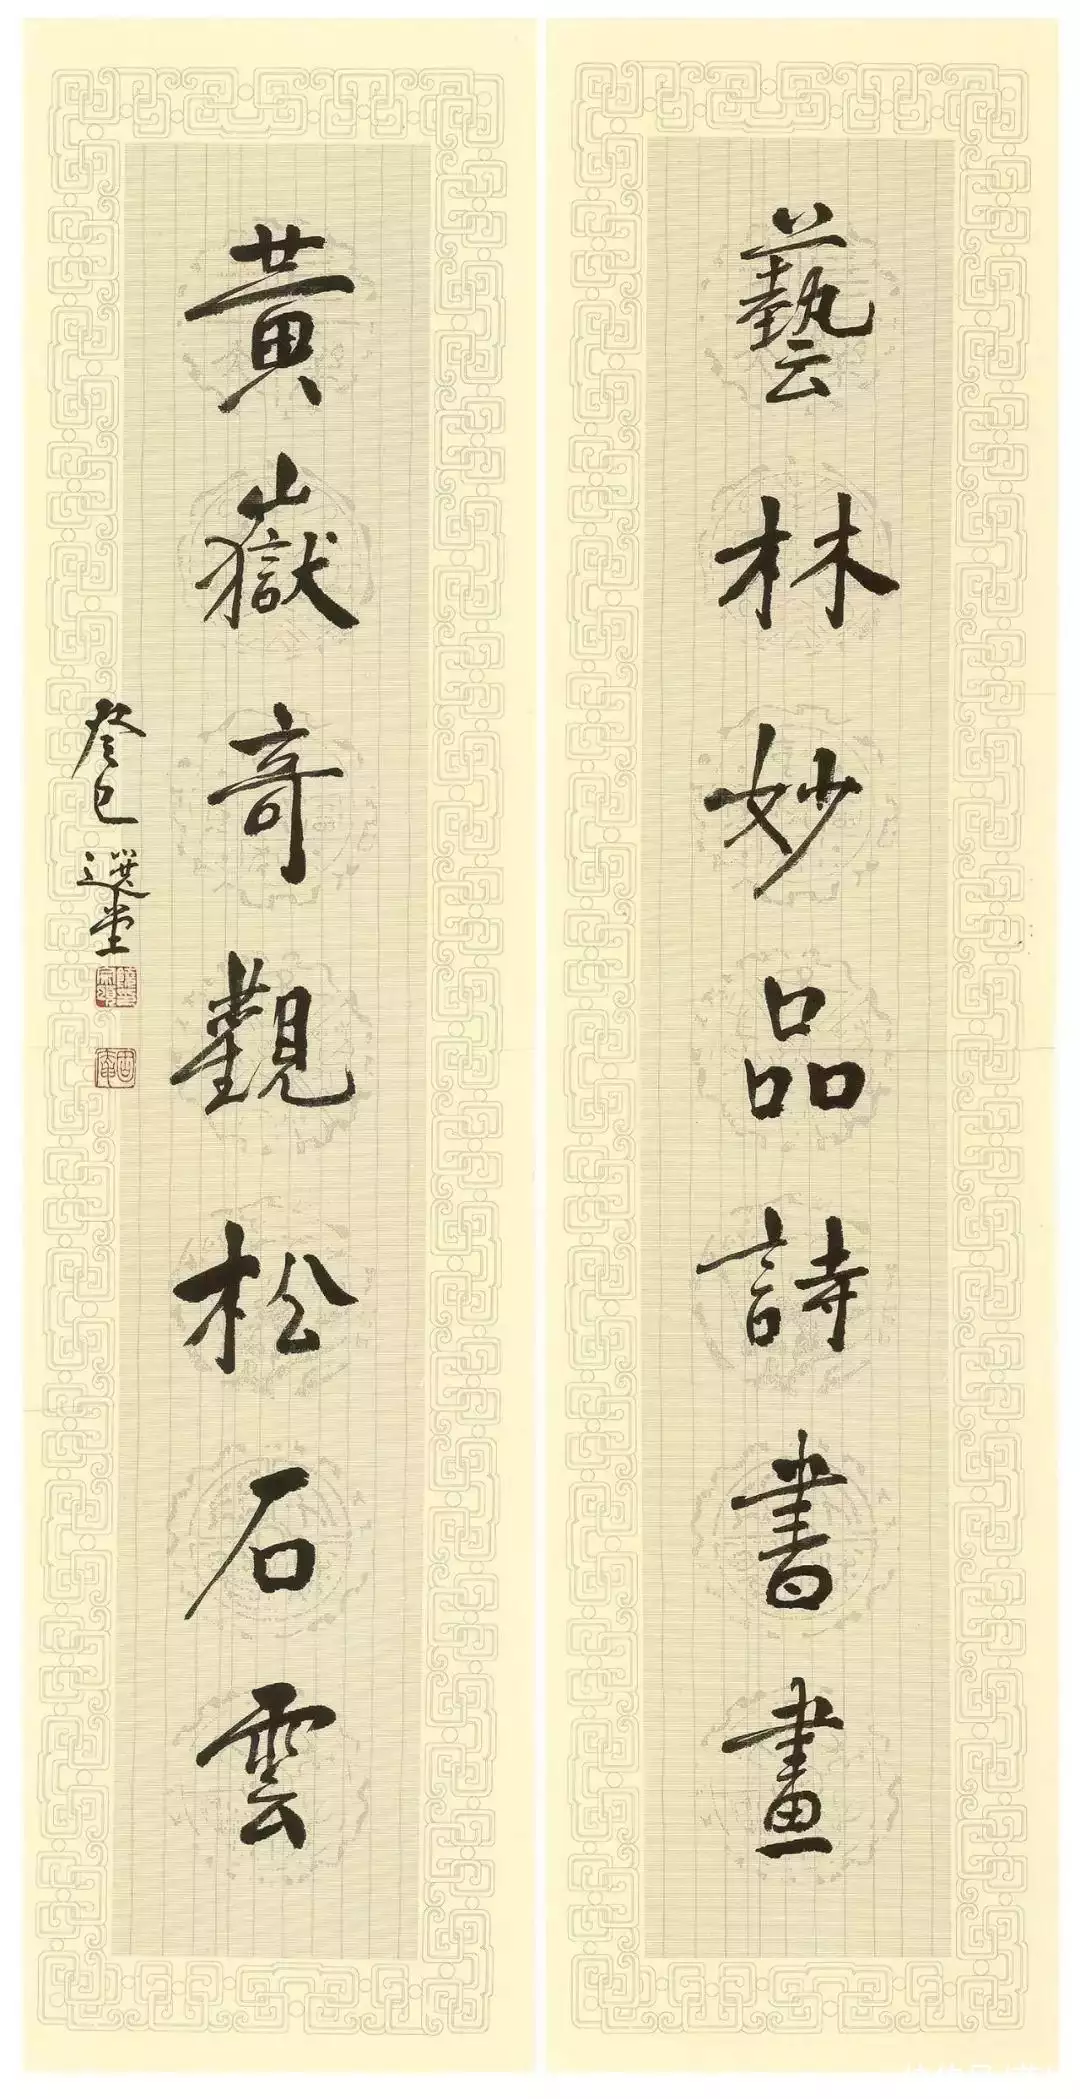 藝林妙品詩書畫
黃嶽奇觀松石雲
癸巳選堂